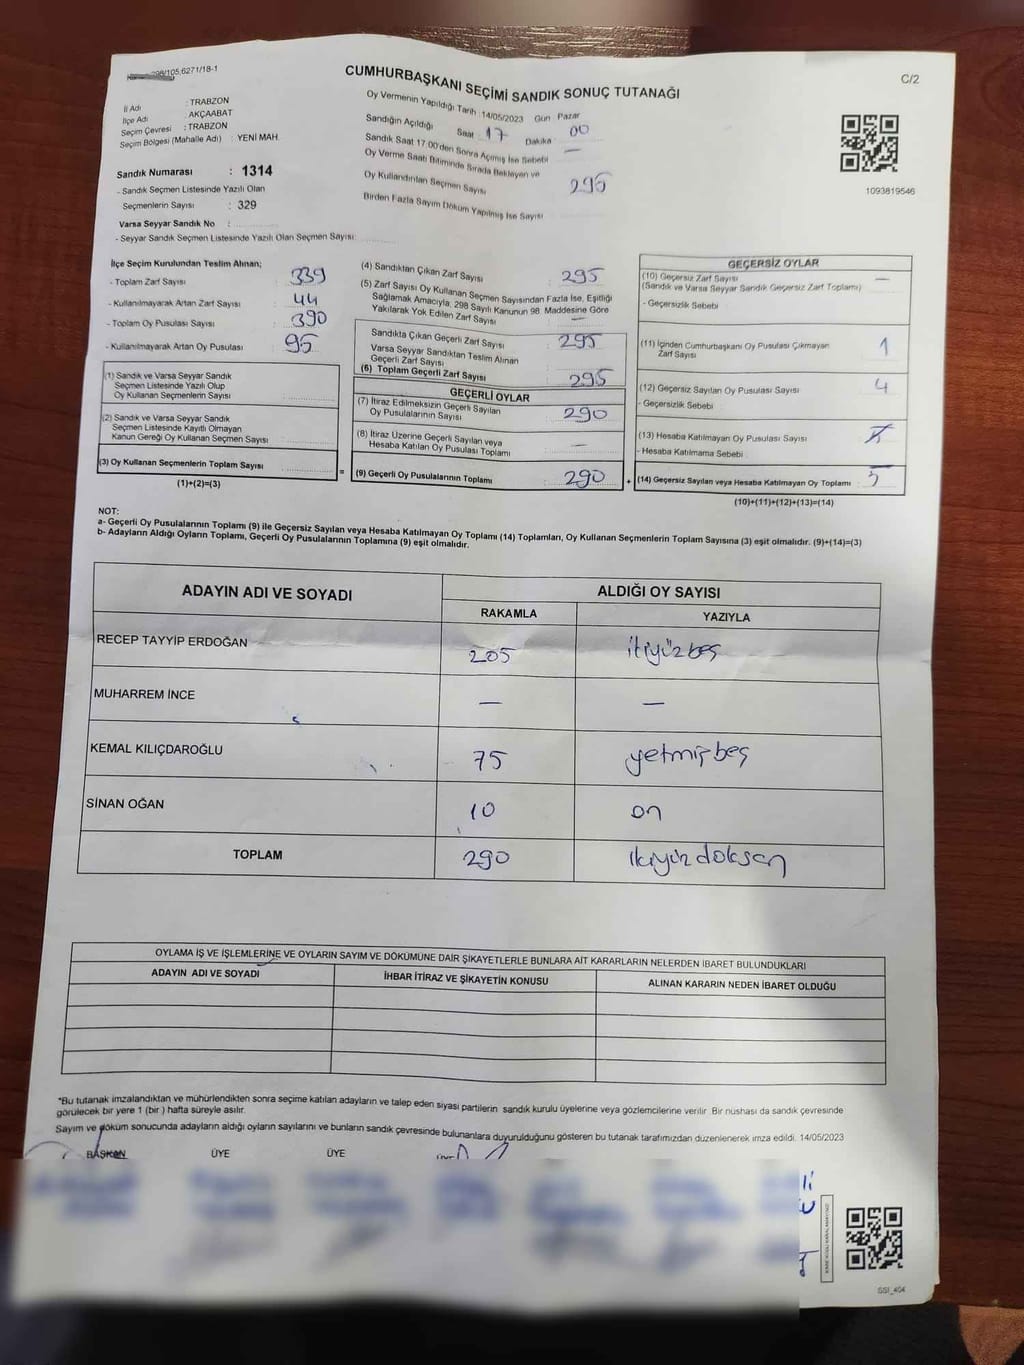 298/105,6271/18-1
CUMHURBAŞKANI SEÇİMİ SANDIK SONUÇ TUTANAĞI
C/2
İl Adı : TRABZON
İlçe Adı : AKÇAABAT
Seçim Çevresi : TRABZON
Seçim Bölgesi (Mahalle Adı) : YENİ MAH.
Sandık Numarası : 1314
- Sandık Seçmen Listesinde Yazılı Olan
Seçmenlerin Sayısı : 329
Varsa Seyyar Sandık No :
- Seyyar Sandık Seçmen Listesinde Yazılı Olan Seçmen Sayısı:
Oy Vermenin Yapıldığı Tarih : 14/05/2023 Gün Pazar
Sandığın Açıldığı Saat : 17 Dakika : 00
Sandık Saat 17.00'den Sonra Açılmış İse Sebebi —
Oy Verme Saati Bitiminde Sırada Bekleyen ve
Oy Kullandırılan Seçmen Sayısı 295
Birden Fazla Sayım Döküm Yapılmış İse Sayısı
1093819546
İlçe Seçim Kurulundan Teslim Alınan;
- Toplam Zarf Sayısı : 339
- Kullanılmayarak Artan Zarf Sayısı : 44
- Toplam Oy Pusulası Sayısı : 390
- Kullanılmayarak Artan Oy Pusulası : 95
(1) Sandık ve Varsa Seyyar Sandık
Seçmen Listesinde Yazılı Olup
Oy Kullanan Seçmenlerin Sayısı :
(2) Sandık ve Varsa Seyyar Sandık
Seçmen Listesinde Kayıtlı Olmayan
Kanun Gereği Oy Kullanan Seçmen Sayısı :
(3) Oy Kullanan Seçmenlerin Toplam Sayısı :
(1)+(2)=(3)
=
(4) Sandıktan Çıkan Zarf Sayısı : 295
(5) Zarf Sayısı Oy Kullanan Seçmen Sayısından Fazla İse, Eşitliği
Sağlamak Amacıyla, 298 Sayılı Kanunun 98. Maddesine Göre
Yakılarak Yok Edilen Zarf Sayısı : —
Sandıkta Çıkan Geçerli Zarf Sayısı : 295
Varsa Seyyar Sandıktan Teslim Alınan
Geçerli Zarf Sayısı
(6) Toplam Geçerli Zarf Sayısı : 295
GEÇERLİ OYLAR
(7) İtiraz Edilmeksizin Geçerli Sayılan
Oy Pusulalarının Sayısı : 290
(8) İtiraz Üzerine Geçerli Sayılan veya
Hesaba Katılan Oy Pusulası Toplamı : —
(9) Geçerli Oy Pusulalarının Toplamı : 290
+
GEÇERSİZ OYLAR
(10) Geçersiz Zarf Sayısı : —
(Sandık ve Varsa Seyyar Sandık Geçersiz Zarf Toplamı)
- Geçersizlik Sebebi :
(11) İçinden Cumhurbaşkanı Oy Pusulası Çıkmayan
Zarf Sayısı : 1
(12) Geçersiz Sayılan Oy Pusulası Sayısı : 4
- Geçersizlik Sebebi :
(13) Hesaba Katılmayan Oy Pusulası Sayısı :
- Hesaba Katılmama Sebebi :
(14) Geçersiz Sayılan veya Hesaba Katılmayan Oy Toplamı : 5
(10)+(11)+(12)+(13)=(14)
NOT:
a- Geçerli Oy Pusulalarının Toplamı (9) ile Geçersiz Sayılan veya Hesaba Katılmayan Oy Toplamı (14) Toplamları, Oy Kullanan Seçmenlerin Toplam Sayısına (3) eşit olmalıdır. (9)+(14)=(3)
b- Adayların Aldığı Oyların Toplamı, Geçerli Oy Pusulalarının Toplamına (9) eşit olmalıdır.
ADAYIN ADI VE SOYADI ALDIĞI OY SAYISI
RAKAMLA YAZIYLA
RECEP TAYYİP ERDOĞAN 205 ikiyüzbeş
MUHARREM İNCE — —
KEMAL KILIÇDAROĞLU 75 yetmişbeş
SİNAN OĞAN 10 on
TOPLAM 290 ikiyüz doksan
OYLAMA İŞ VE İŞLEMLERİNE VE OYLARIN SAYIM VE DÖKÜMÜNE DAİR ŞİKAYETLERLE BUNLARA AİT KARARLARIN NELERDEN İBARET BULUNDUKLARI
ADAYIN ADI VE SOYADI İHBAR İTİRAZ VE ŞİKAYETİN KONUSU ALINAN KARARIN NEDEN İBARET OLDUĞU
*Bu tutanak imzalandıktan ve mühürlendikten sonra seçime katılan adayların ve talep eden siyasi partilerin sandık kurulu üyelerine veya gözlemcilerine verilir. Bir nüshası da sandık çevresinde
görülecek bir yere 1 (bir ) hafta süreyle asılır.
Sayım ve döküm sonucunda adayların aldığı oyların sayılarını ve bunların sandık çevresinde bulunanlara duyurulduğunu gösteren bu tutanak tarafımızdan düzenlenerek imza edildi. 14/05/2023
BAŞKAN ÜYE ÜYE
SSI_404